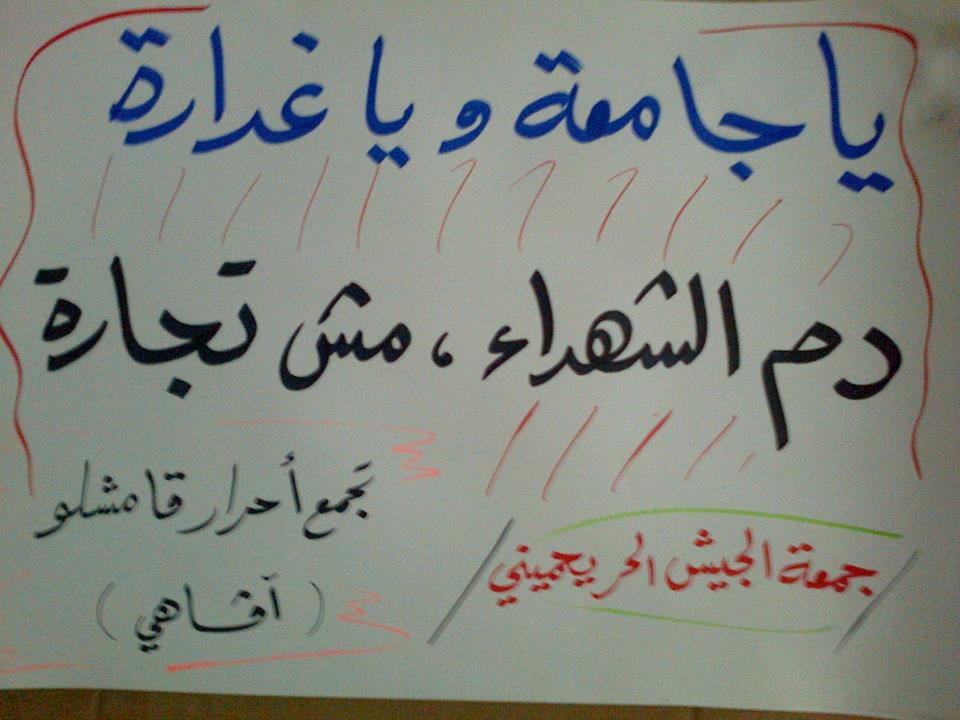 يا جامعة ويا غدارة
دم الشهداء ، مش تجارة
جمعة الجيش الحر يحميني
تجمع أحرار قامشلو
(آفاهي)